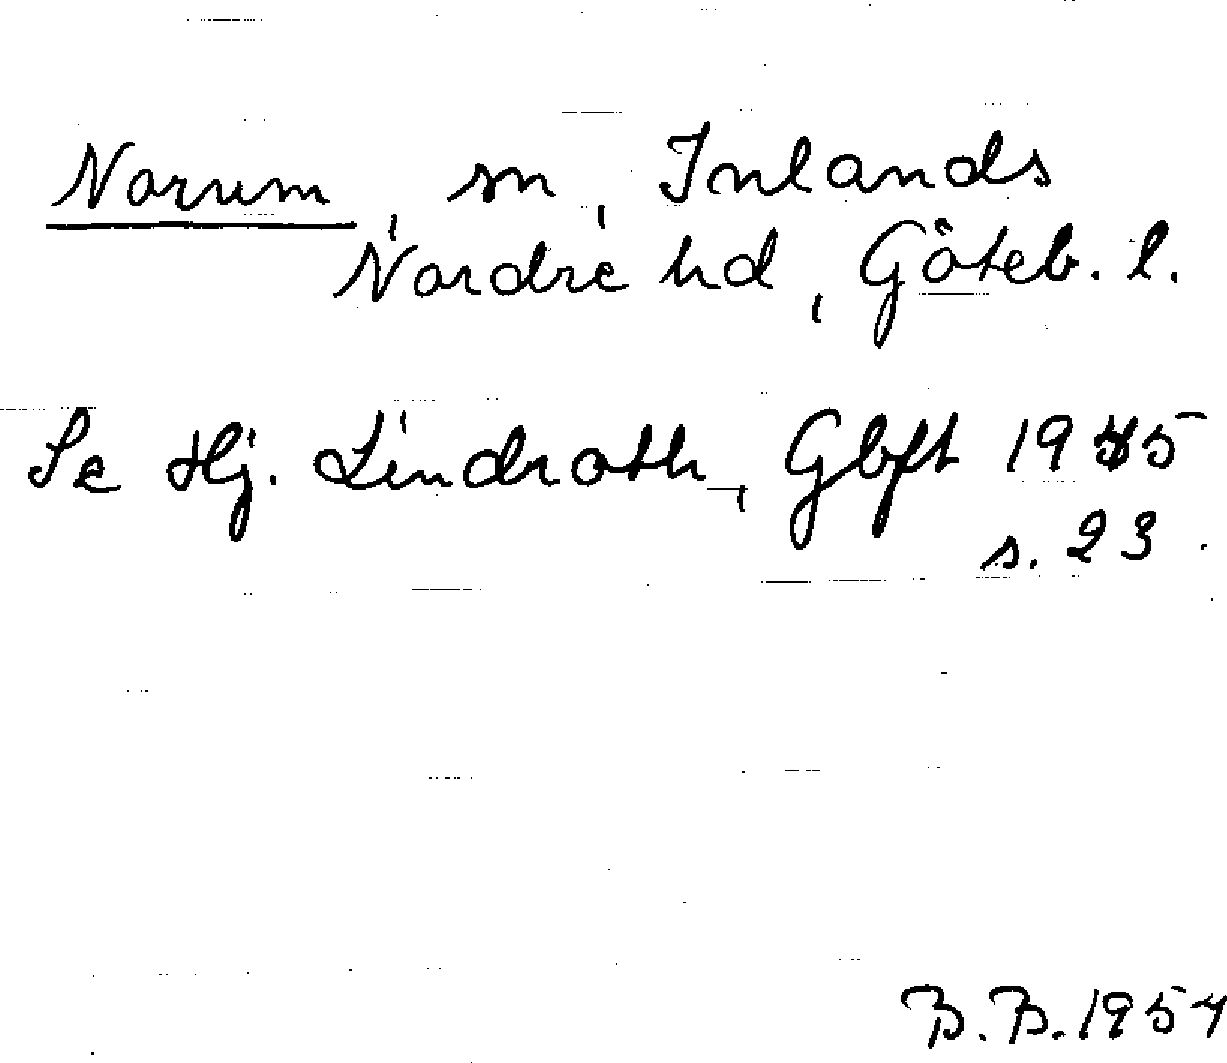 Norum, sn, Inlands
Nordre hd, Göteb. l.
Se Hj. Lindroth, Gbft 1945
s. 23.
B. B. 1954